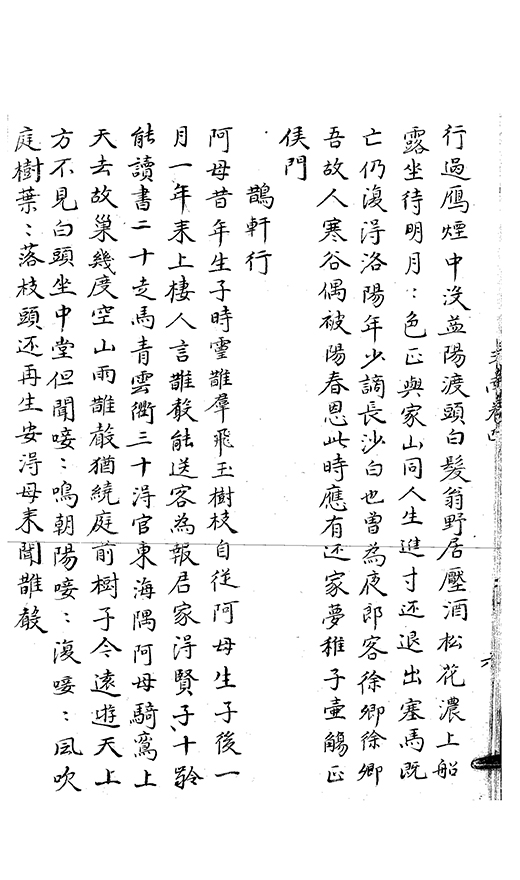 行過鴈煙中没益陽渡頭白髮翁野居壓酒松花濃上船
露坐待明月〻色正與家山同人生進寸还退出塞馬既
亡仍復淂洛陽年少謫長沙白也曽為夜郎客徐卿徐卿
吾故人寒谷偶被陽春恩此時應有还家夢稚子壷觴正
侯門
鵲軒行
阿母昔年生子時靈鵲羣飛玉樹枝自從阿母生子後一
月一年来上棲人言鵲聲能送客為報君家淂賢子十齡
能讀書二十走馬青雲衢三十淂官東海隅阿母騎鸞上
天去故巢幾度空山雨鵲聲猶繞庭前樹子今遠遊天上
方不見白頭坐中堂但聞唼〻鳴朝陽唼〻復唼〻風吹
庭樹葉〻落枝頭还再生安淂母来聞鵲聲
六